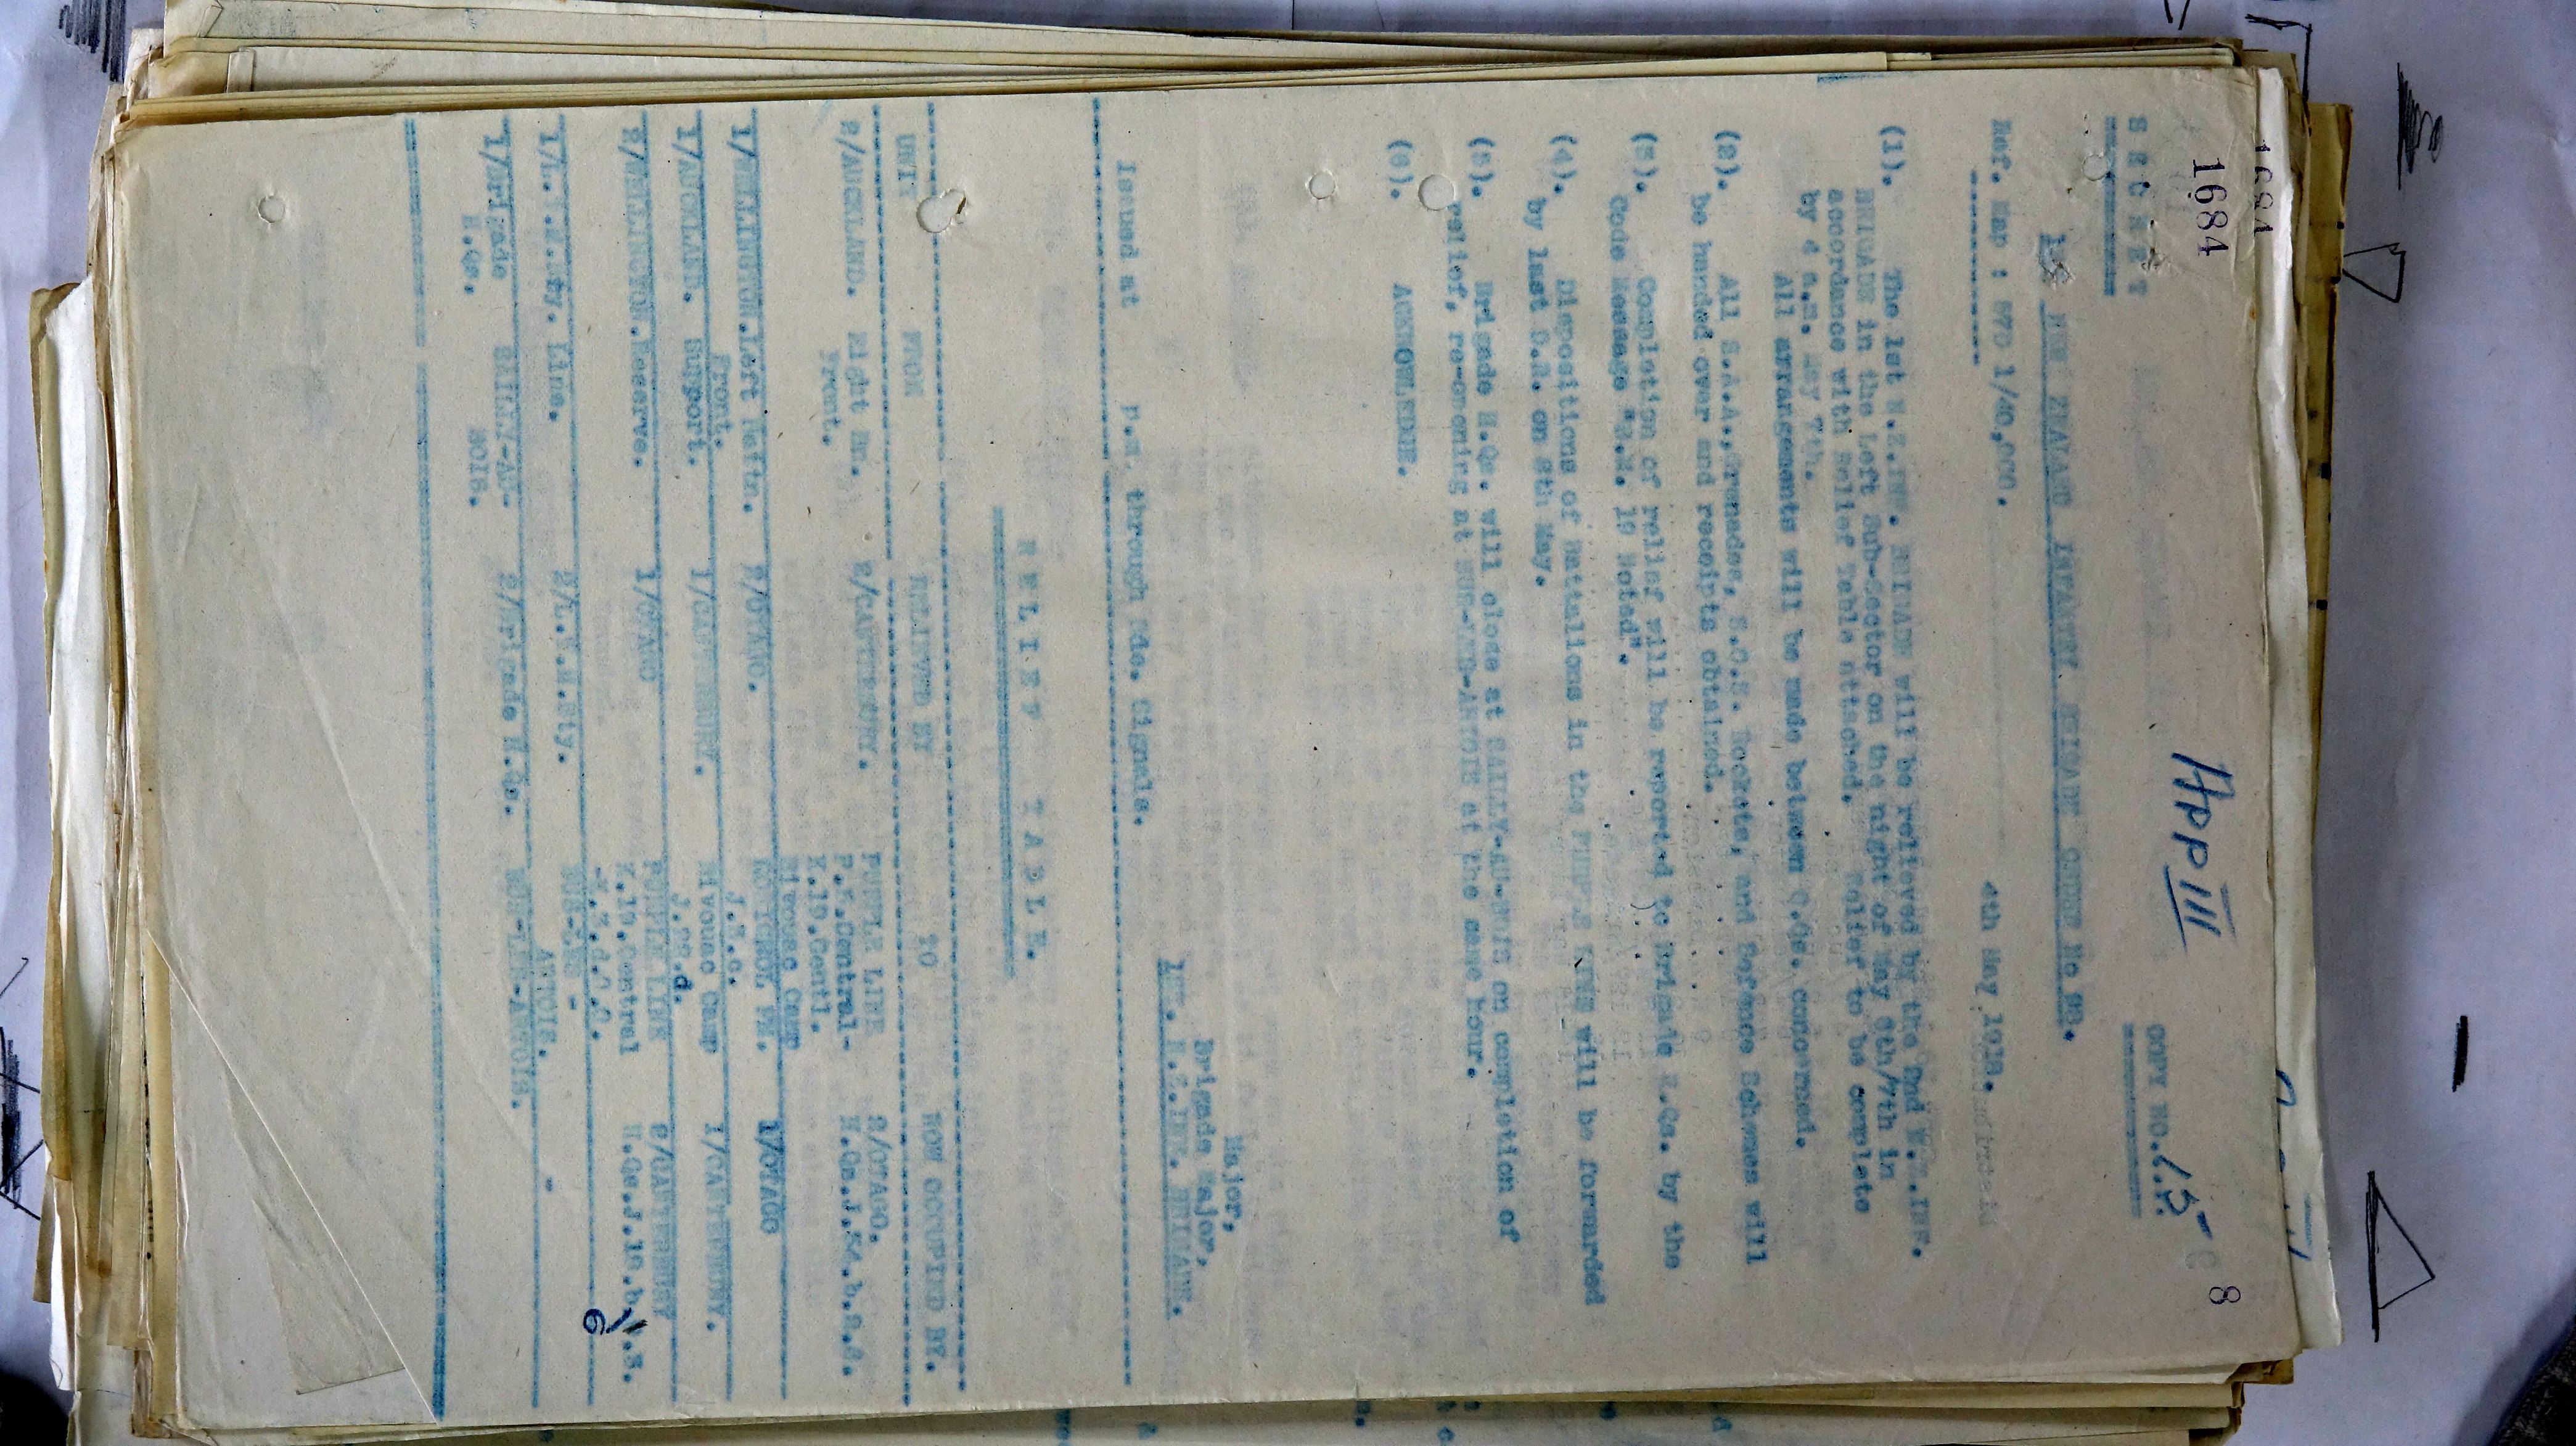 1684
App III
8
S E C R E T
COPY NO. 15
1st NEW ZEALAND INFANTRY BRIGADE ORDER No
Ref. Map : 57D 1/40,000.
4th May, 1918.
(1). The 1st N.Z.INF. BRIGADE will be relieved by the 2nd N.Z.INF.
BRIGADE in the Left Sub-Sector on the night of May 6th/7th in
accordance with Relief Table attached. Relief to be complete
by 4 a.m. May 7th.
All arrangements will be made between O.Cs. concerned.
(2). All S.A.A., Grenades, S.O.S. Rockets, and Defence Schemes will
be handed over and receipts obtained.
(3). Completion of relief will be reported to Brigade H.Qs. by the
Code Message 19 Noted".
(4). Dispositions of Battalions in the PURPLE LINE will be forwarded
by last D.R. on 8th May.
(5). Brigade H.Qs. will close at SAILLY-AU-BOIS on completion of
relief, re-opening at BUS-LES-ARTOIS at the same hour.
(6). ACKNOWLEDGE.
Major,
Brigade Major,
1ST. N.Z.INF. BRIGADE.
Issued at P.M. through Bde. Signals.
R E L I E F T A B L E.
UNIT FROM RELIEVED BY TO NOW OCCUPIED BY.
2/AUCKLAND. Right Bn. 2/CANTERBURY. PURPLE LINE 2/OTAGO.
Front. Central-
K.19.Centl.
1/WELLINGTON. Left Battn. 2/OTAGO. Bivouac Camp 1/OTAGO
Front.
1/AUCKLAND. Support. 1/CANTERBURY. Bivouac Camp 1/CANTERBURY.
2/WELLINGTON. Reserve. 1/OTAGO PURPLE LINE 2/CANTERBURY
K.19.Central
6
1/L.T.M.Bty. Line. 2/L.T.M.Bty. BUS-LES-
ARTOIS. -
1/Brigade SAILLY-AU- 2/Brigade H.Qs. BUS-LES-ARTOIS.
H.Qs. BOIS.